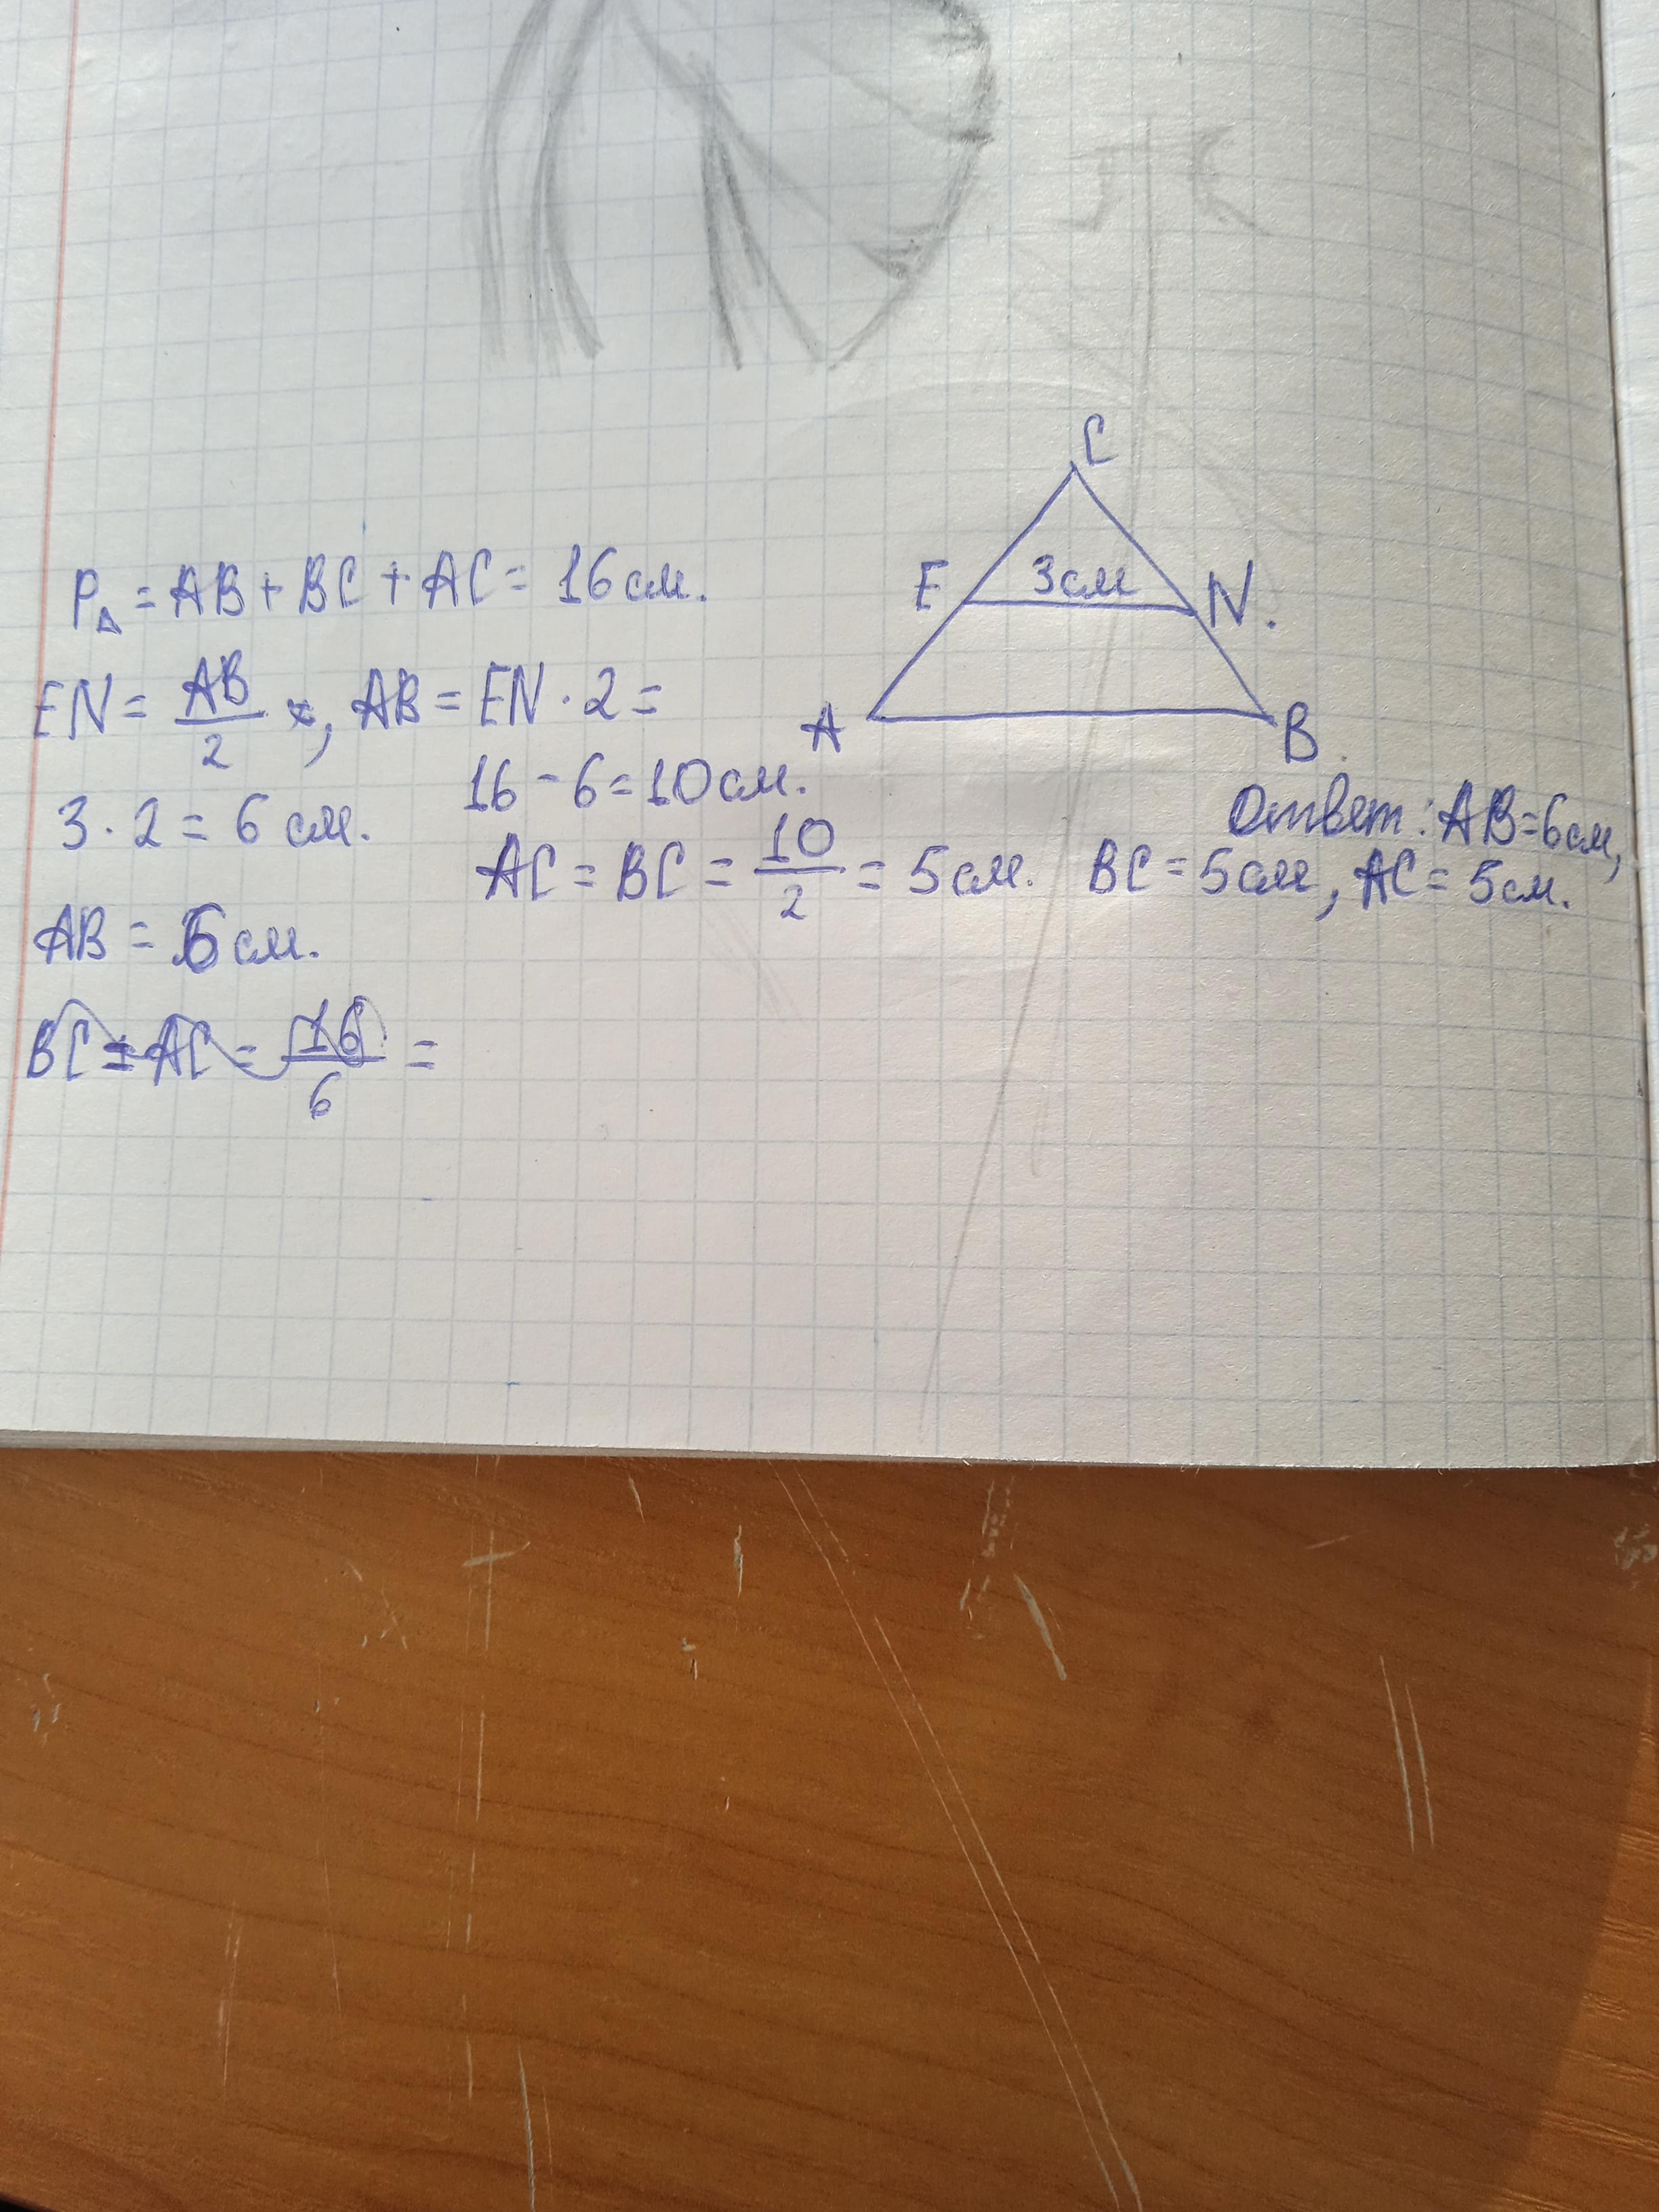 C
P△ = AB + BC + AC = 16 см.
E 3см N.
EN = AB/2, AB = EN · 2 =
A B.
3 · 2 = 6 см.
16 - 6 = 10 см.
AC = BC = 10/2 = 5 см.
Ответ: AB = 6 см,
BC = 5 см, AC = 5 см.
AB = 6 см.
BC = AC = 16/6 =